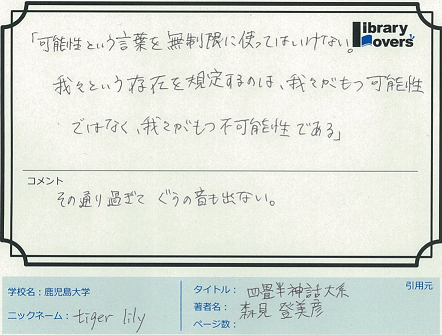 Library Lovers'
「可能性という言葉を無制限に使ってはいけない。
我々という存在を規定するのは、我々がもつ可能性
ではなく、我々がもつ不可能性である」
コメント
その通り過ぎて ぐうの音も出ない。
学校名：鹿児島大学
ニックネーム： tiger lily
タイトル： 四畳半神話大系
引用元
著者名： 森見登美彦
ページ数：